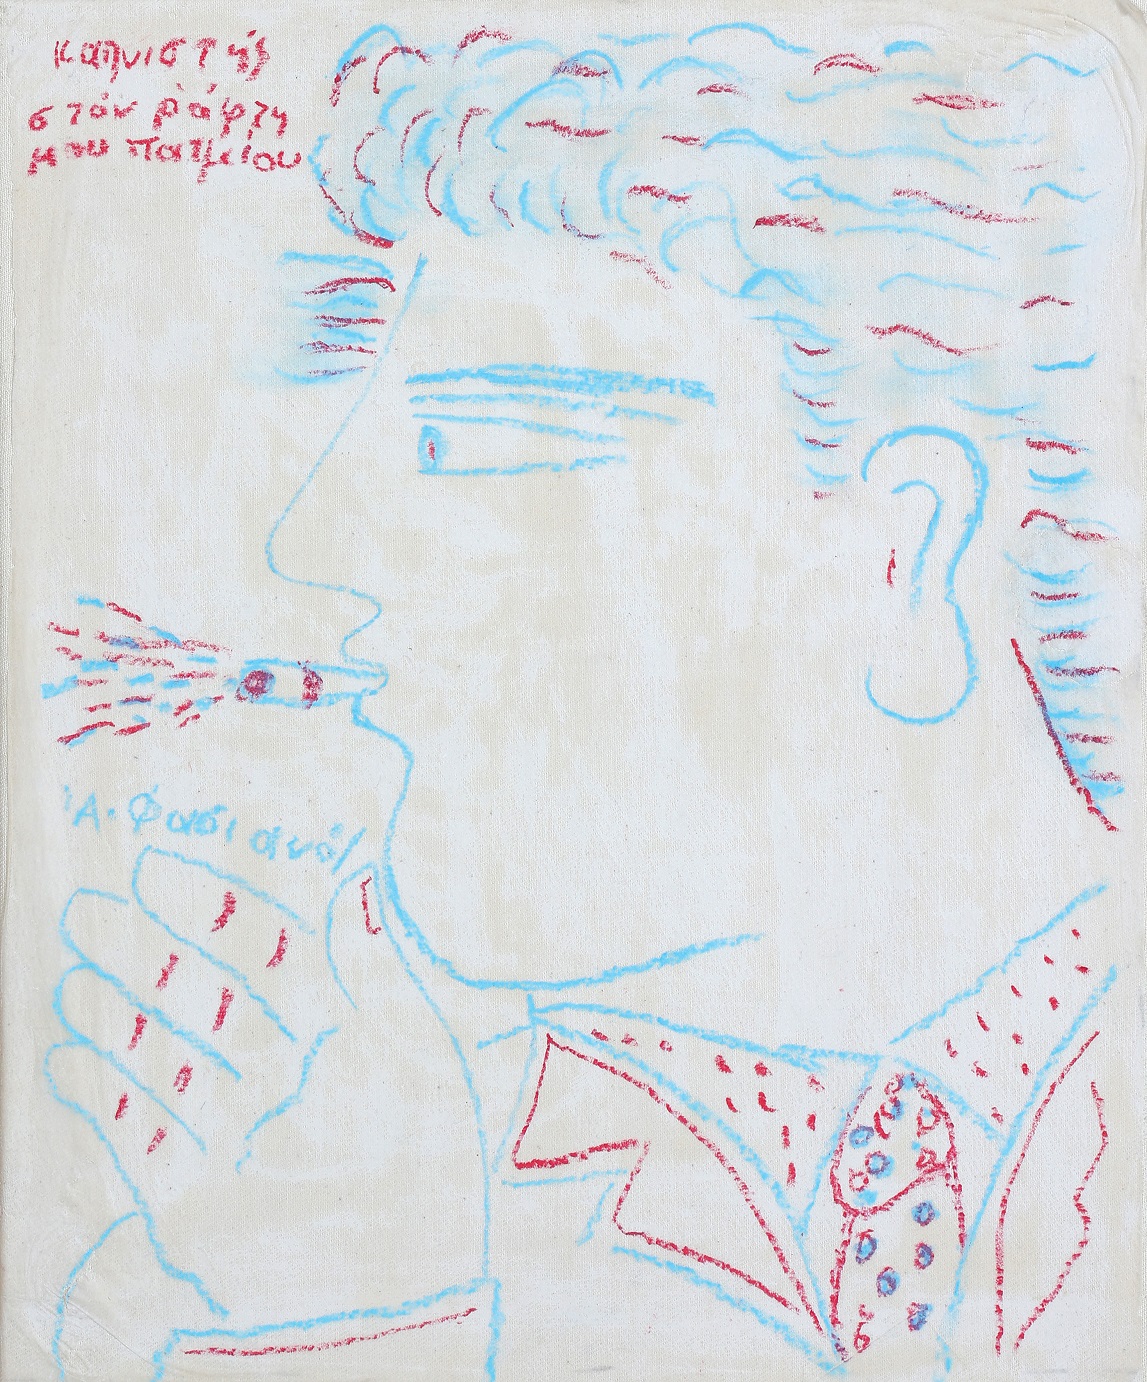 καπνιστής
στόν ράφτη
μου Πατμείου
Ἀ. Φασιανός